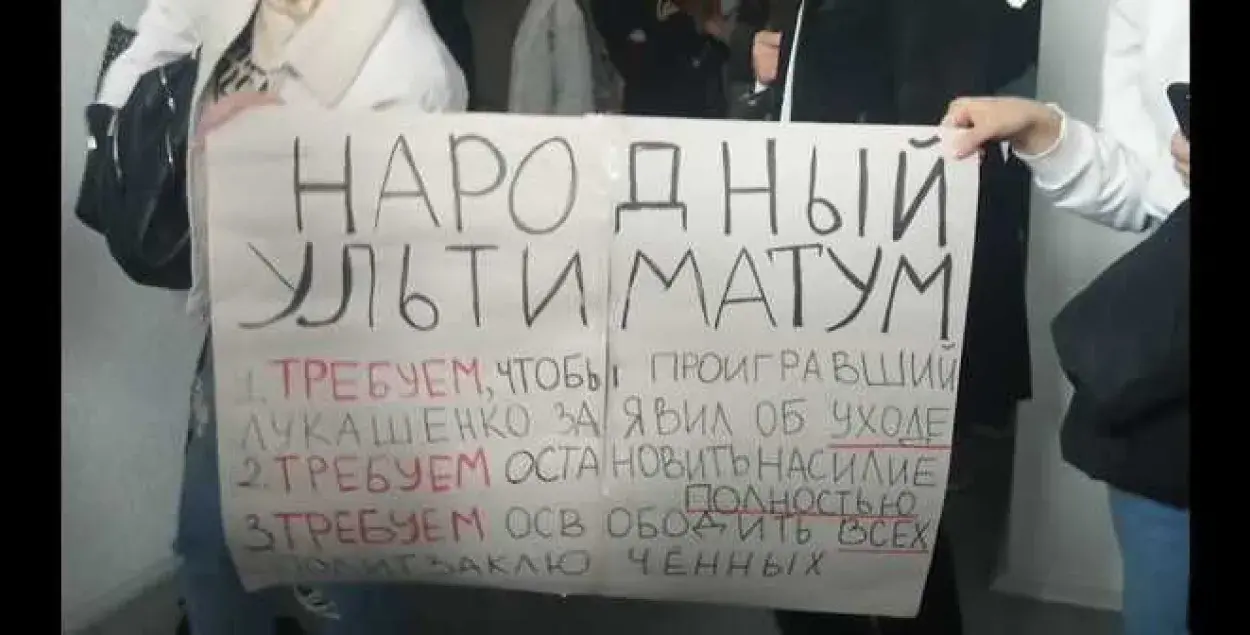 НАРОДНЫЙ
УЛЬТИМАТУМ
1. ТРЕБУЕМ, ЧТОБЫ ПРОИГРАВШИЙ
ЛУКАШЕНКО ЗАЯВИЛ ОБ УХОДЕ
2. ТРЕБУЕМ ОСТАНОВИТЬ НАСИЛИЕ
ПОЛНОСТЬЮ
3 ТРЕБУЕМ ОСВОБОДИТЬ ВСЕХ
ПОЛИТЗАКЛЮЧЕННЫХ